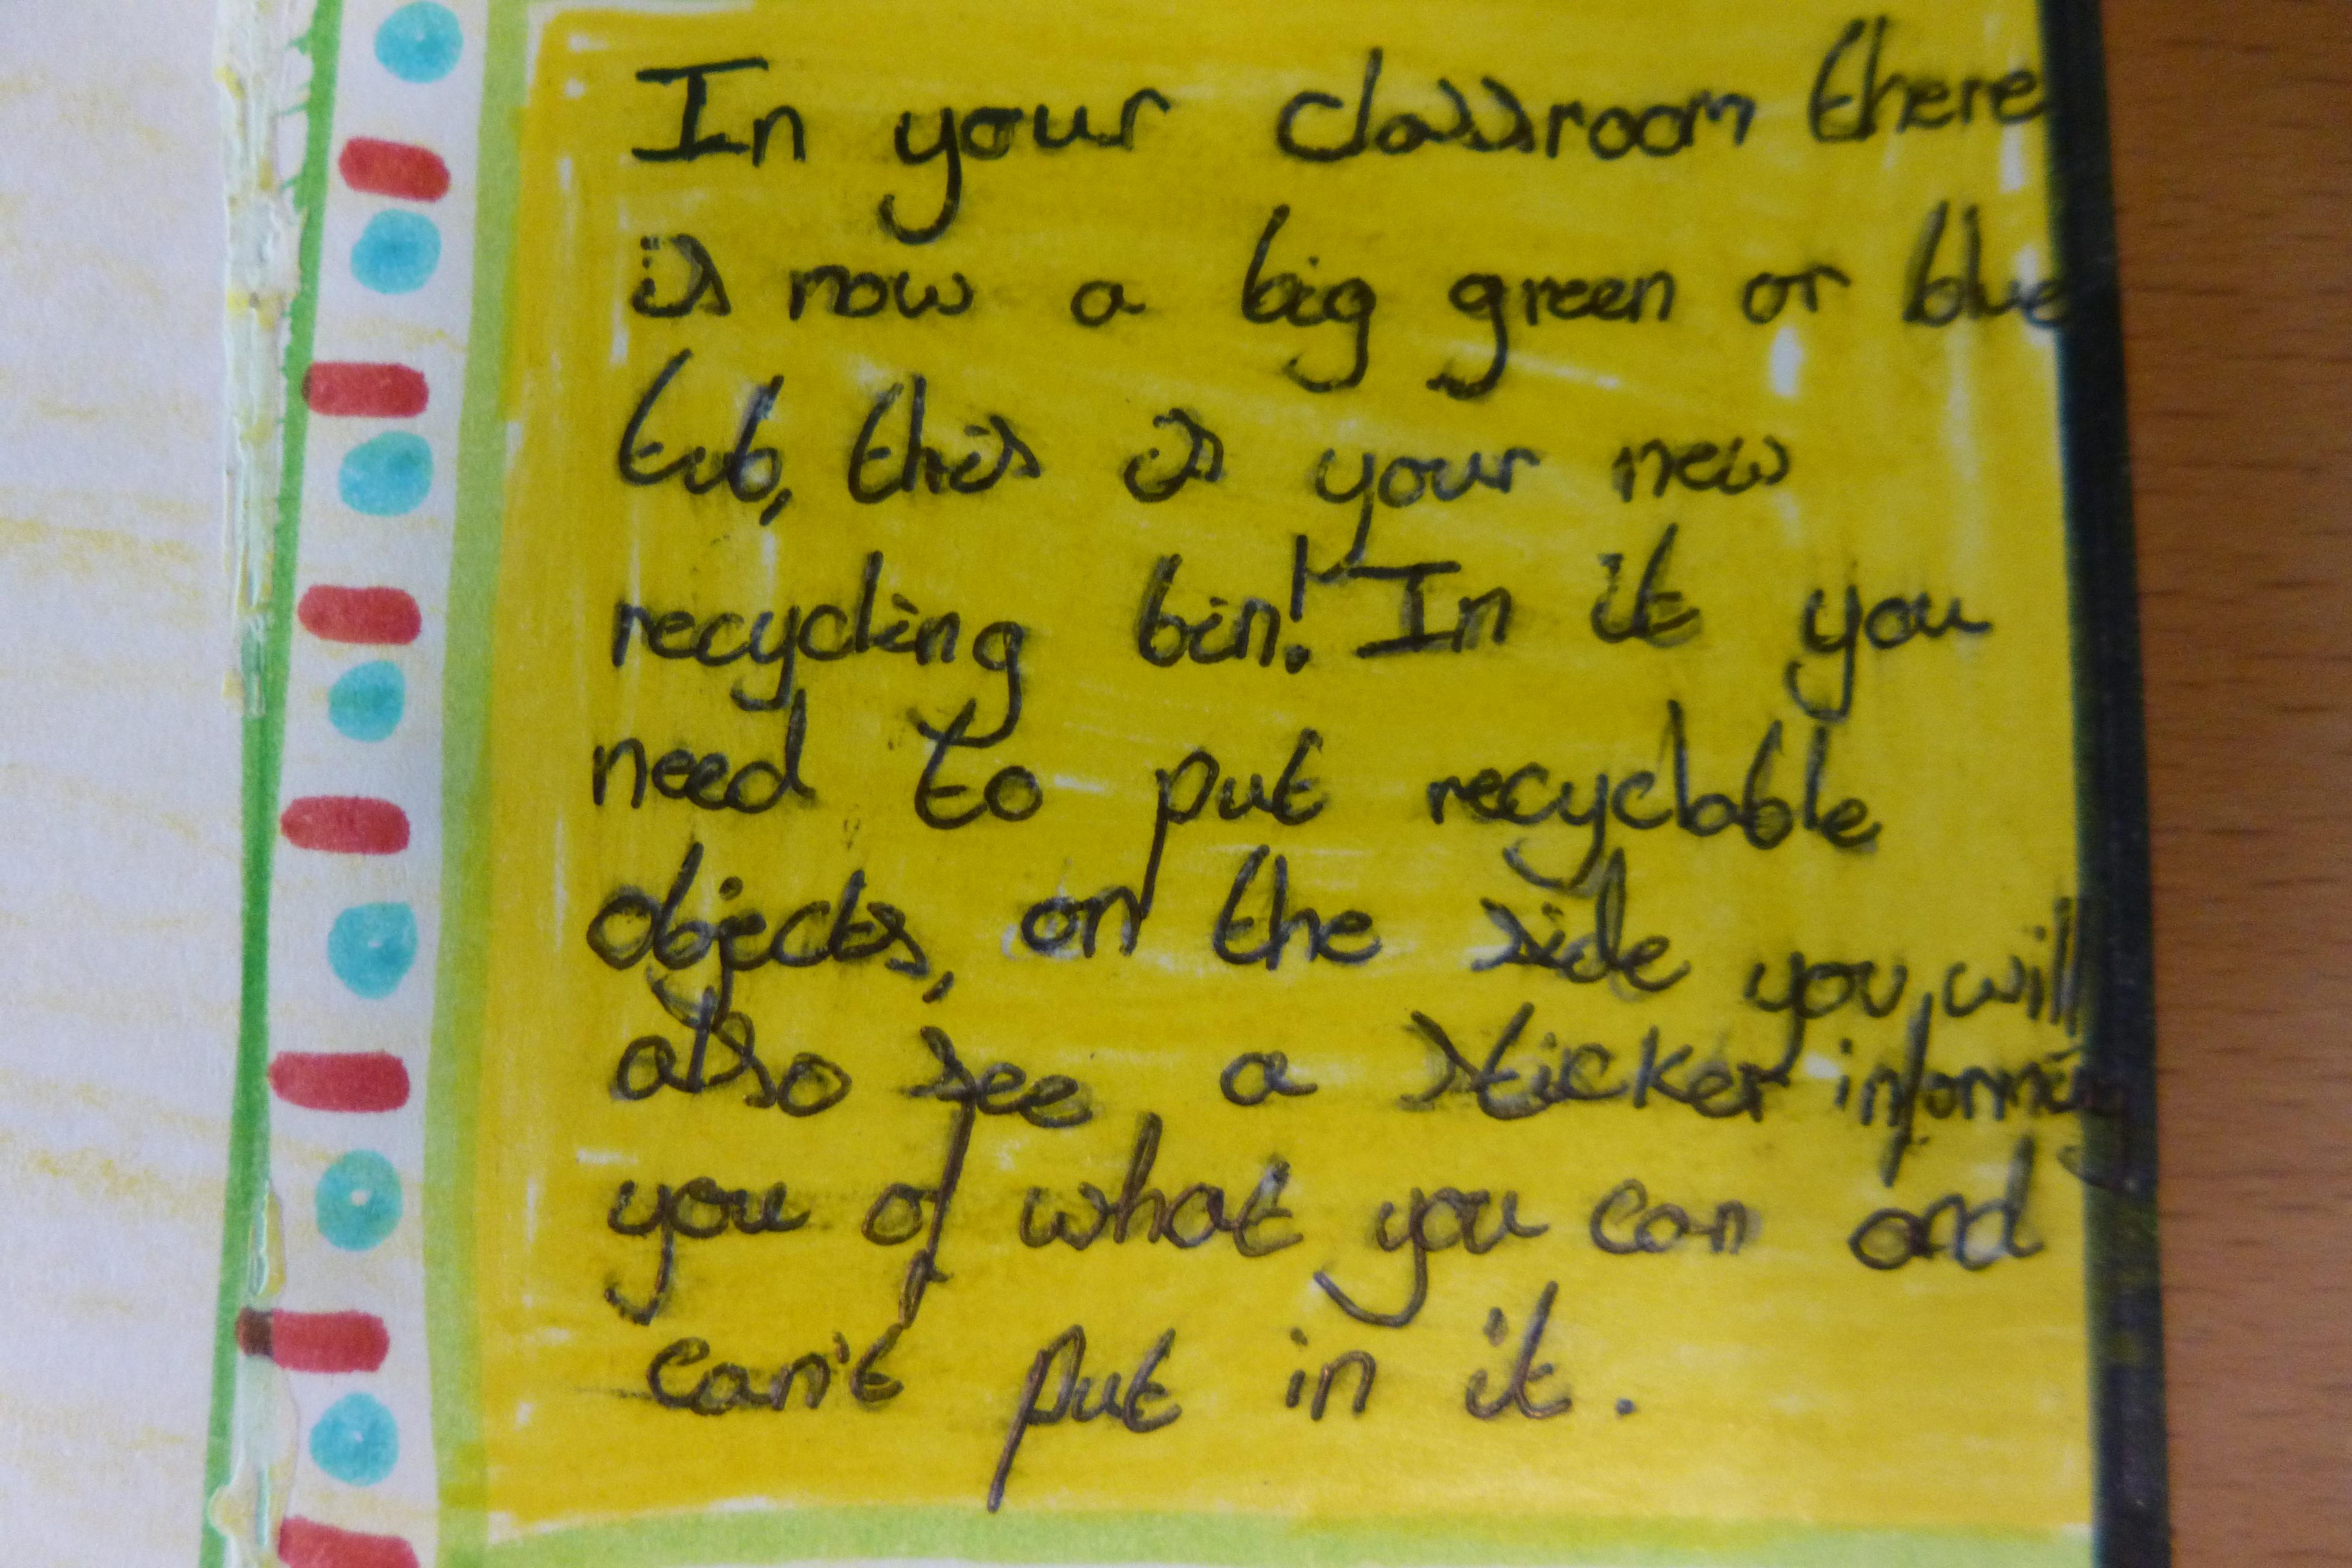 In your classroom there
is now a big green or blue
tub, this is your new
recycling bin! In it you
need to put recyclable
objects, on the side you will
also see a sticker informing
you of what you can and
can't put in it.